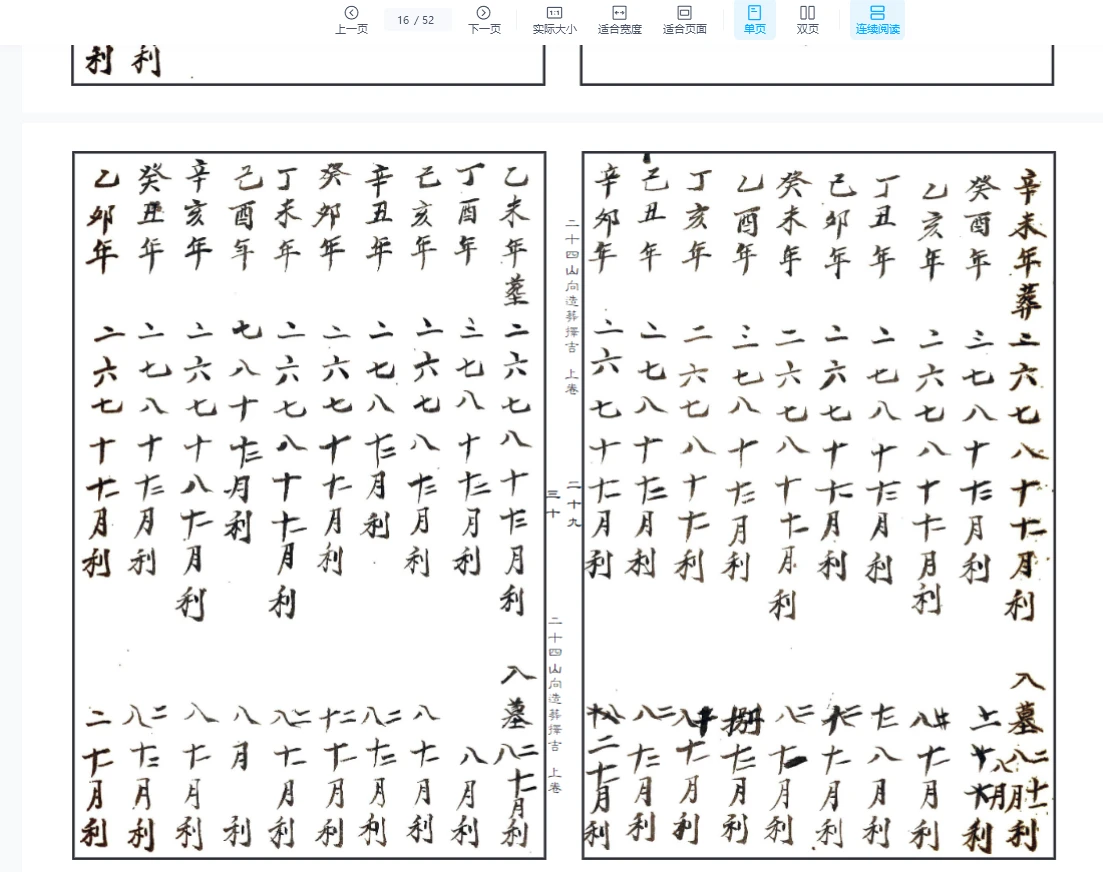 上一页
16 / 52
下一页
1:1
实际大小
适合宽度
适合页面
单页
双页
连续阅读
利
利
辛未年葬 三六七八十十一月利 入墓八二十一月利
癸酉年 三七八十十二月利
乙亥年 二六七八十十一月利
丁丑年 二七八十十二月利 十二八月利
己卯年 二六七十十一月利
癸未年 二六七八十十一月利
乙酉年 三七八十十二月利 捌十二月利
丁亥年 二六七八十十一月利
己丑年 二七八十十二月利 八二十二月利
辛卯年 二六七十十一月利
二十四山向造葬择吉 上卷
二十九
三十
二十四山向造葬择吉 上卷
乙未年墓 二六七八十十二月利 入墓八二十一月利
丁酉年 三七八十十二月利 八月利
己亥年 二六七八十二月利 八十一月利
辛丑年 二七八十二月利 八二十二月利
癸卯年 二六七十十一月利 十二十一月利
丁未年 二六七八十十一月利 八二十一月利
己酉年 七八十十二月利 八月利
辛亥年 二六七十八十一月利 八十一月利
癸丑年 二七八十十二月利 八二十二月利
乙卯年 二六七十十一月利 二十一月利